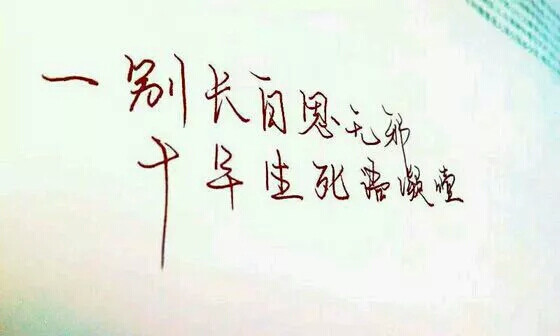 一别长自思无邪
十年生死路凝噎